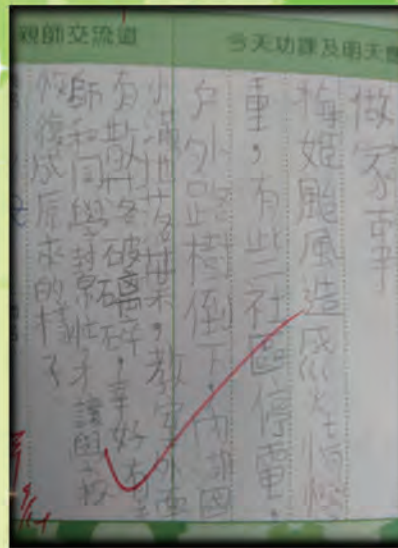 親師交流道
今天功課及明天
做家事
梅姬颱風造成災情慘
重，有些社區停電，
戶外路樹倒下，內湖國
小滿地落葉，教室
有數片玻璃碎，幸好老
師和同學幫忙才讓學校
恢復成原來的樣子